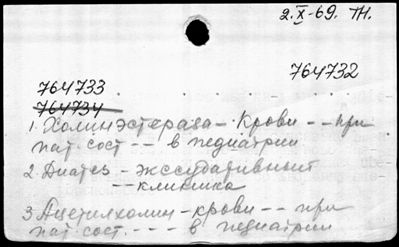 2.X-69. ТН.
764732
764733
764734
1. Холинэстераза - крови -- при
пат. сост -- в педиатрии
2. Диатез - экссудативный
-- клиника
3. Ацетилхолин - крови -- при
пат. сост. --- в педиатрии